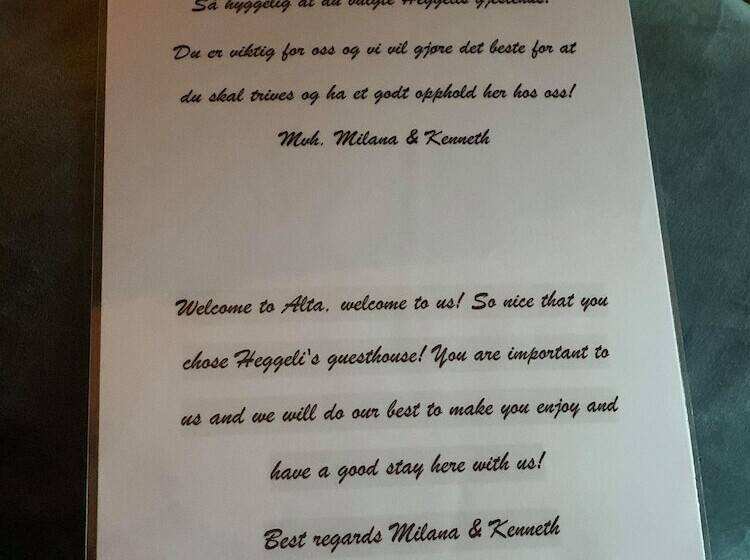 Så hyggelig at du valgte Heggelis gjestehus!
Du er viktig for oss og vi vil gjøre det beste for at
du skal trives og ha et godt opphold her hos oss!
Mvh. Milana & Kenneth
Welcome to Alta, welcome to us! So nice that you
chose Heggeli's guesthouse! You are important to
us and we will do our best to make you enjoy and
have a good stay here with us!
Best regards Milana & Kenneth